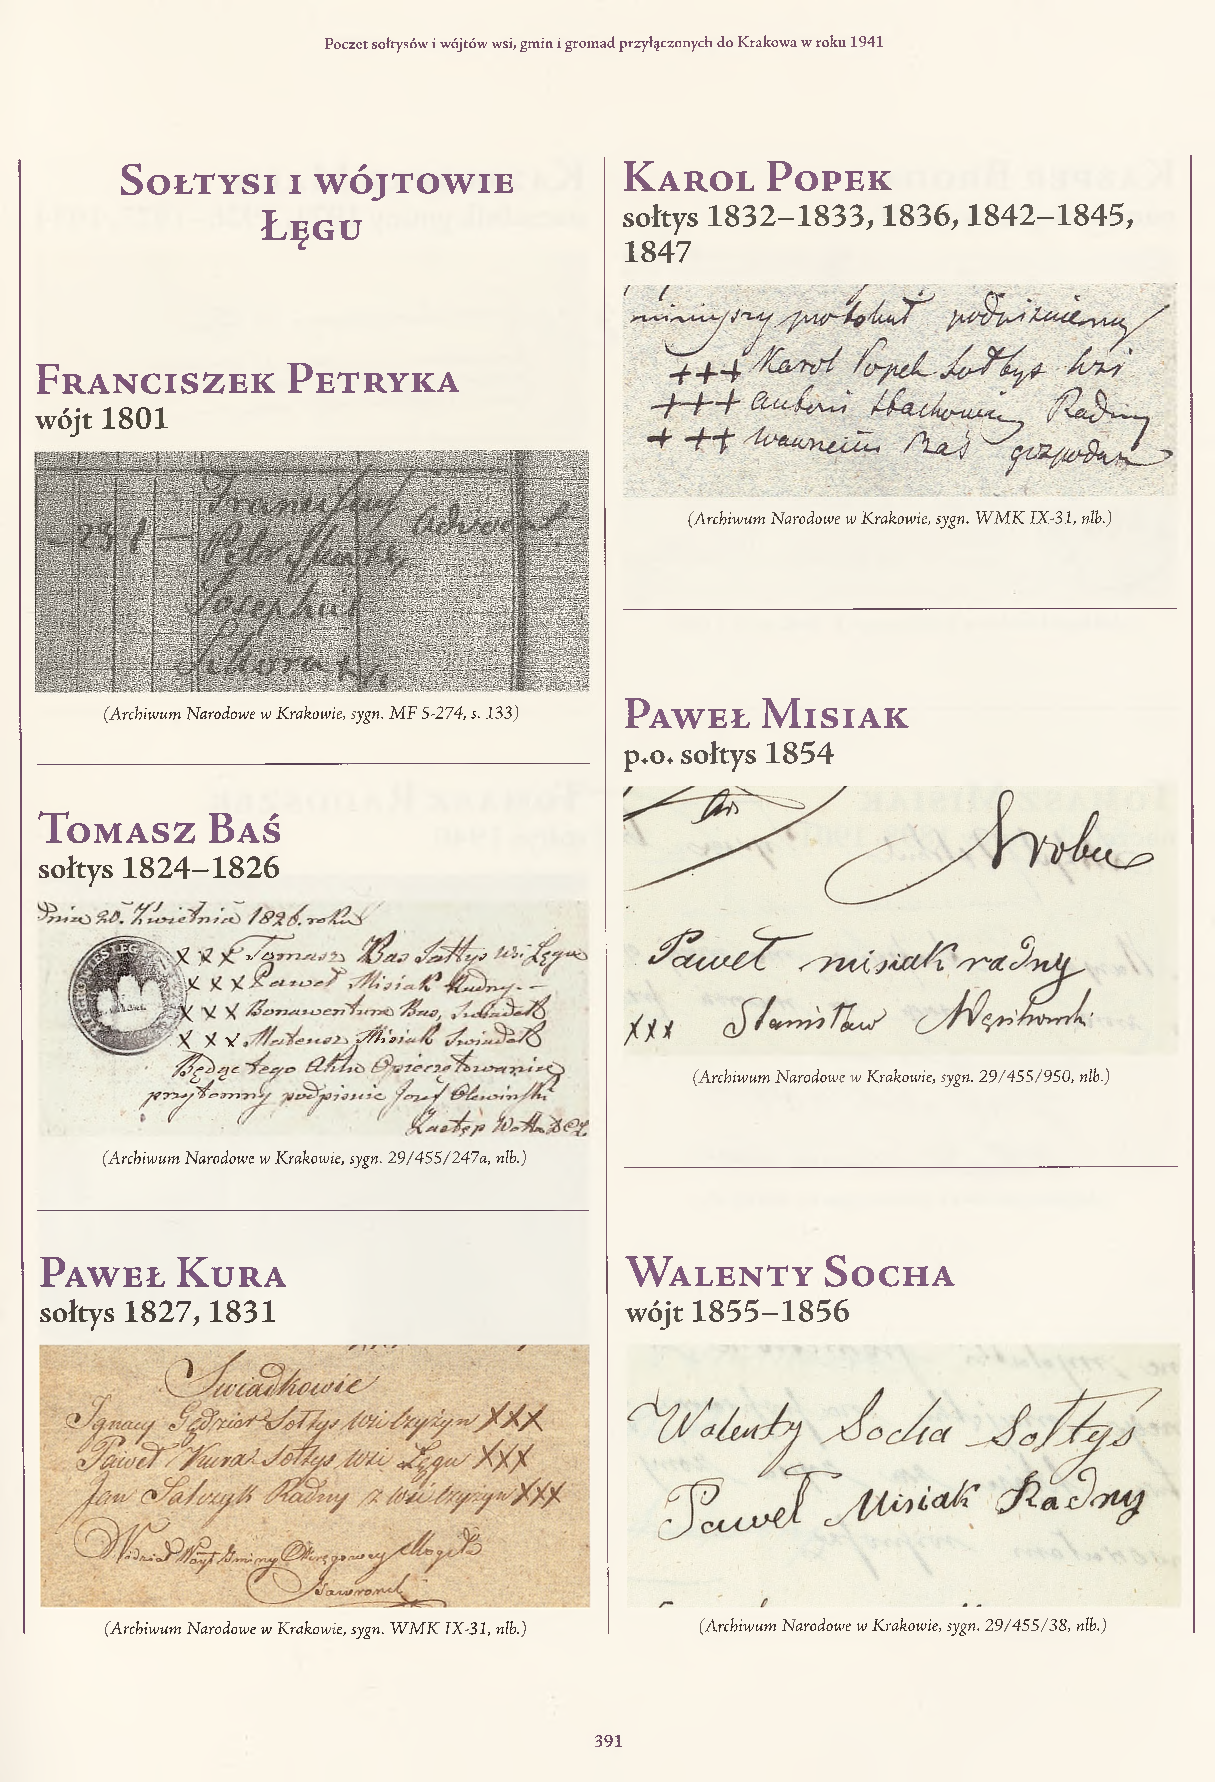 Poczet sołtysów i wójtów wsi, gmin i gromad przyłączonych do Krakowa w roku 1941
Sołtysi i wójtowie
Łęgu
Franciszek Petryka
wójt 1801
23
Advocat
Josephus
Sikora
(Archiwum Narodowe w Krakowie, sygn. MF S-274, s. 133)
Tomasz Baś
sołtys 1824–1826
Dnia 20. Kwietnia 1826. roku
x x x Tomasz Bas Sołtys wsi Łęgu
x x x Paweł Misiak Radny. –
x x x Bonawentura Bas, Swiadek
x x x Mateusz Misiak Swiadek
Będąc tego Aktu Opieczętowania
przytomny podpisuie Jozef
Zastęp Woÿta
(Archiwum Narodowe w Krakowie, sygn. 29/455/247a, nlb.)
Paweł Kura
sołtys 1827, 1831
Swiadkowie
Ignacy Sołtys wsi Czyżyn XXX
Paweł Kura Sołtys wsi Łęgu XXX
Jan Salczyk Radny z wsi Czyżyn XXX
Widział Woyt Gminy Okręgowey Mogiła
Gawroneck
(Archiwum Narodowe w Krakowie, sygn. WMK IX-31, nlb.)
Karol Popek
sołtys 1832–1833, 1836, 1842–1845,
1847
protokuł
+++ Karol Popek Sołtys Wsi
+++ Antoni Radny
+ ++ Wawrzeniec Baś gospodarz
(Archiwum Narodowe w Krakowie, sygn. WMK IX-31, nlb.)
Paweł Misiak
p.o. sołtys 1854
Paweł misiak radny
xxx Stanisław
(Archiwum Narodowe w Krakowie, sygn. 29/455/950, nlb.)
Walenty Socha
wójt 1855–1856
Walenty Socha Sołtys
Paweł Misiak Radny
(Archiwum Narodowe w Krakowie, sygn. 29/455/38, nlb.)
391